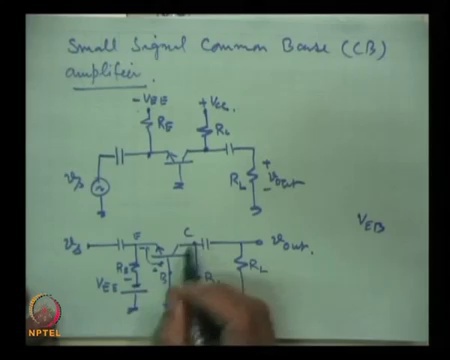 Small Signal Common Base (CB)
amplifier.
-VEE +VCC
RE RL
vs RL + vout -
VEB
vs E C vout.
RE B RL RL
VEE
NPTEL